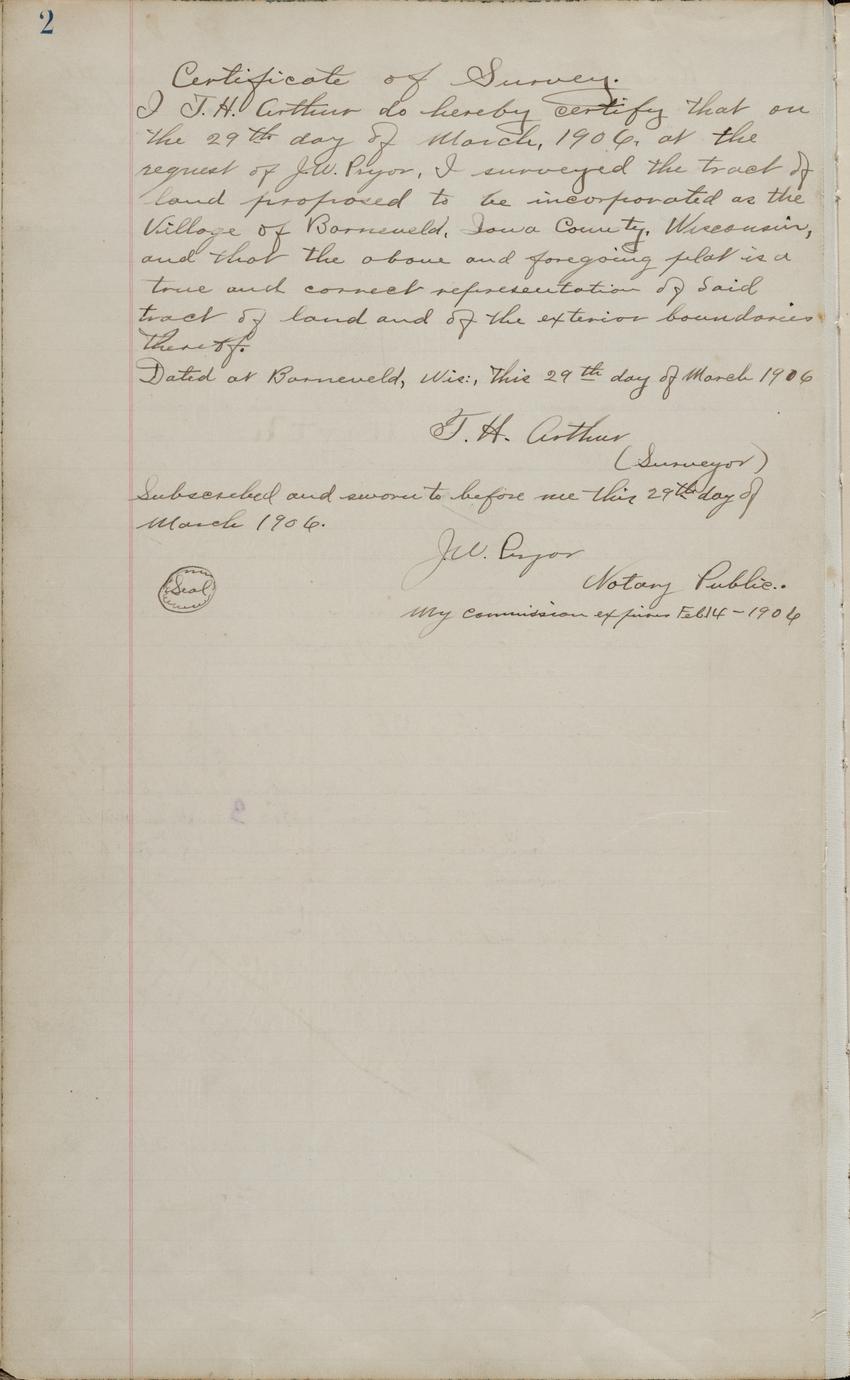 2
Certificate of Survey.
I T. H. Arthur do hereby certify that on
the 29th day of March, 1906, at the
request of J.W. Pryor, I surveyed the tract of
land proposed to be incorporated as the
Village of Barneveld, Iowa County, Wisconsin,
and that the above and foregoing plat is a
true and correct representation of said
tract of land and of the exterior boundaries
thereof.
Dated at Barneveld, Wis:, this 29th day of March 1906
T. H. Arthur
(Surveyor)
Subscribed and sworn to before me this 29th day of
March 1906.
J.W. Pryor
Seal
Notary Public..
My commission expires Feb 14 - 1906